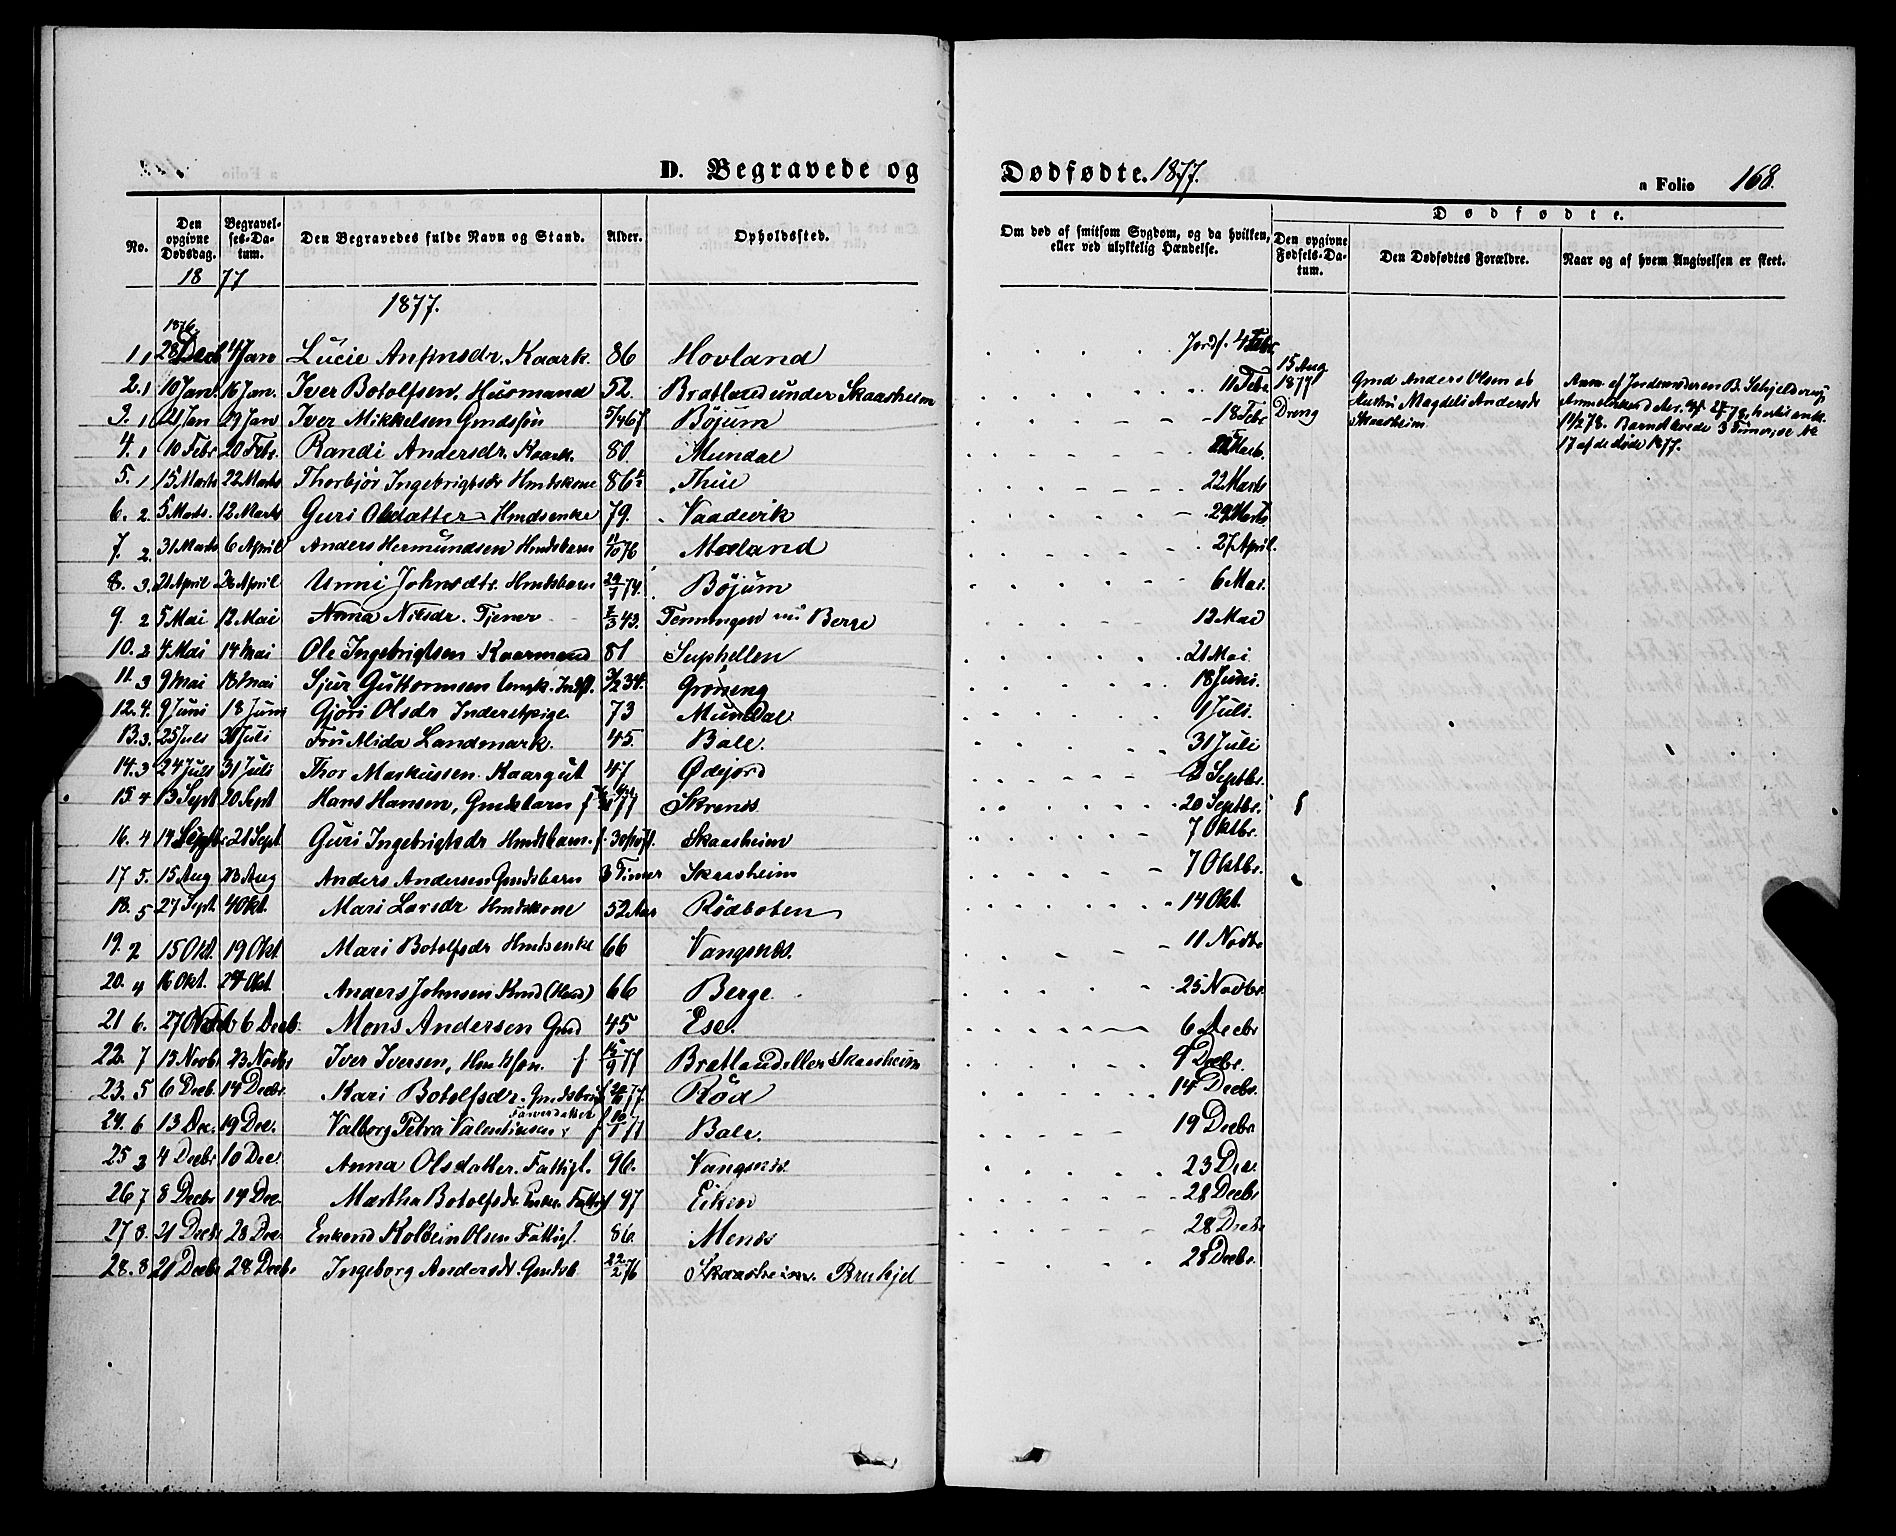 D. Begravede og Dødfødte. 1877.
a Folio 168.
No.
Den opgivne Dødsdag.
Begravelses-Datum.
Den Begravedes fulde Navn og Stand.
Alder.
Opholdssted.
Om død af smitsom Sygdom, og da hvilken, eller ved ulykkelig Hændelse.
Dødfødte.
Den opgivne Fødsels-Datum.
Den Dødfødtes Forældre.
Naar og af hvem Angivelsen er skeet.
18 77
1877.
1876.
1 1 28 Decb 4 Jan Lucie Anfinsdr. Kaark. 86 Hovland Jordf. 4 Febr.
2. 1 10 Jan. 16 Jan. Iver Botolfsen, Husmand 52. Bratland under Skaasheim 11 Febr
3. 1 21 Jan 29 Jan Iver Mikkelsen Gmdssøn Bøjum 18 Febr
15 Aug 1877 Dreng
Gmd Anders Olsen og Hustru Magdeli Andersdr Skaasheim
4. 1 10 Febr 20 Febr. Randi Andersdr. Kaark. 80. Mundal
17 af de døde 1877.
5. 1 15 Marts 22 Marts Thorbjør Ingebrigtsdr Hmdskone 86 Thue 22 Marts
6. 2. 5 Marts. 12 Marts Guri Olsdatter Hmdsenke 79. Vaadevik 29 Marts
7. 2. 31 Marts 6 April Anders Hermundsen Hmdsbarn 11/10 76 Mæland 27 April.
8. 3. 21 April 28 April Unni Johnsdtr. Hmdsbarn 74. Bøjum 6 Mai.
9. 2 5 Mai 12 Mai Anna Nilsdr. Tjener 43. Tenningen Berge 12 Mai
10. 2 4 Mai 14 Mai Ole Ingebrigtsen Kaarmand 81 Suphellen 21 Mai
11. 3 9 Mai 18 Mai Sjur Guttormsen 34. Grøneng 18 Juni.
12. 4. 9 Juni 18 Juni Gjøri Olsdr Inderstpige 73 Mundal 1 Juli.
13. 3. 25 Juli 31 Juli Fru Mida Landmark. 45. Bale. 31 Juli
14. 3 24 Juli 31 Juli Thor Markussen Kaargut 47 Ødejord 2 Septbr.
15. 4 13 Sept 20 Sept Hans Hansen, Gmdsbarn f 77 Skrenes 20 Septbr.
16. 4 14 Septbr 21 Sept Guri Ingebrigtsdr Hmdsbarn f. Skaasheim 7 Oktbr.
17 5. 15 Aug 23 Aug Anders Andersen Gmdsbarn 3 Timer Skaasheim 7 Oktbr.
18. 5 27 Sept. 4 Okt. Mari Larsdr Hmdskone 52 Aar Rødboten 14 Okt.
19. 2 15 Okt. 19 Okt. Mari Botolfsdr Hmdsenke 66 Vangsnes. 11 Novbr
20. 4 16 Okt. 24 Okt. Anders Johnsen 66 Berge 25 Novbr.
21 6. 27 Novb 6 Decb. Mons Andersen Gmd 45 Ese. 6 Decbr
22. 7 15 Novbr 23 Novbr Iver Iversen, Hmdssøn. f 15/9 77 Bratland eller Skaasheim 9 Decbr.
23. 5 6 Decb. 14 Decbr. Kari Botolfsdr. f 77. Rød 14 Decbr.
24. 6 13 Dec. 19 Dec. Valborg Petra Valentinsen Farverdatter f 77 Bale. 19 Decbr
25 3 4 Decbr 10 Dec. Anna Olsdatter. Fattigl. 96. Vangsnes. 23 Dec.
26 7 8 Decbr 14 Dec. Martha Botolfsdr Enke. Fattigl 97 Eiken 28 Decbr
27 8. 21 Decbr 28 Dec. Enkemd Kolbein Olsen Fattigl. 86. Menes 28 Decbr
28. 8 21 Decbr 28 Decbr Ingeborg Andersdr. Gmdsb. 22/2 76 Skaasheim. 28 Decbr.